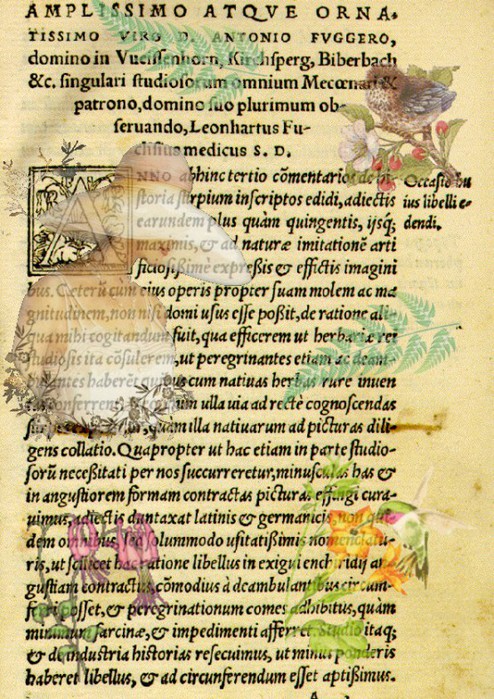 AMPLISSIMO ATQVE ORNA-
TISSIMO VIRO D. ANTONIO FVGGERO,
domino in Vueissenhorn, Kirchsperg, Biberbach
&c. singulari studiosorum omnium Mecœnati &
patrono, domino suo plurimum ob-
seruando, Leonhartus Fu-
chsius medicus S. D.
ANNO abhinc tertio cõmentarios de hi-
storia stirpium inscriptos edidi, adiectis
earundem plus quàm quingentis, ijsq́;
maximis, & ad naturæ imitationẽ arti
ficiosissimè expreßis & effictis imagini
bus. Ceterũ cum eius operis propter suam molem ac ma
gnitudinem, non nisi domi usus esse poßit, de ratione ali-
qua mihi cogitandum fuit, qua efficerem ut herbariæ rei
studiosis ita cõsulerem, ut peregrinantes etiam ac deam-
bulantes haberẽt quibus cum natiuas herbas rure inuen
tas conferrent. ullauia ad rectè cognoscendas
quàm illa natiuarum ad picturas dili-
gens collatio. Quapropter ut hac etiam in parte studio-
sorũ neceßitati per nos succurreretur, minusculas has &
in angustiorem formam contractas picturas effingi cura-
uimus, adiectis duntaxat latinis & germanicis, non qui-
dem omnibus, sed solummodo usitatißimis nomenclatu-
ris, ut scilicet hac ratione libellus in exigui enchiridij an
gustiam contractus, cõmodius à deambulantibus circum-
ferri posset, & peregrinationum comes adhibitus, quàm
minimum sarcinæ, & impedimenti afferret. Studio itaq́;
& de industria historias resecuimus, ut minus ponderis
haberet libellus, & ad circunferendum esset aptißimus.
Occasio hu
ius libelli e-
dendi.